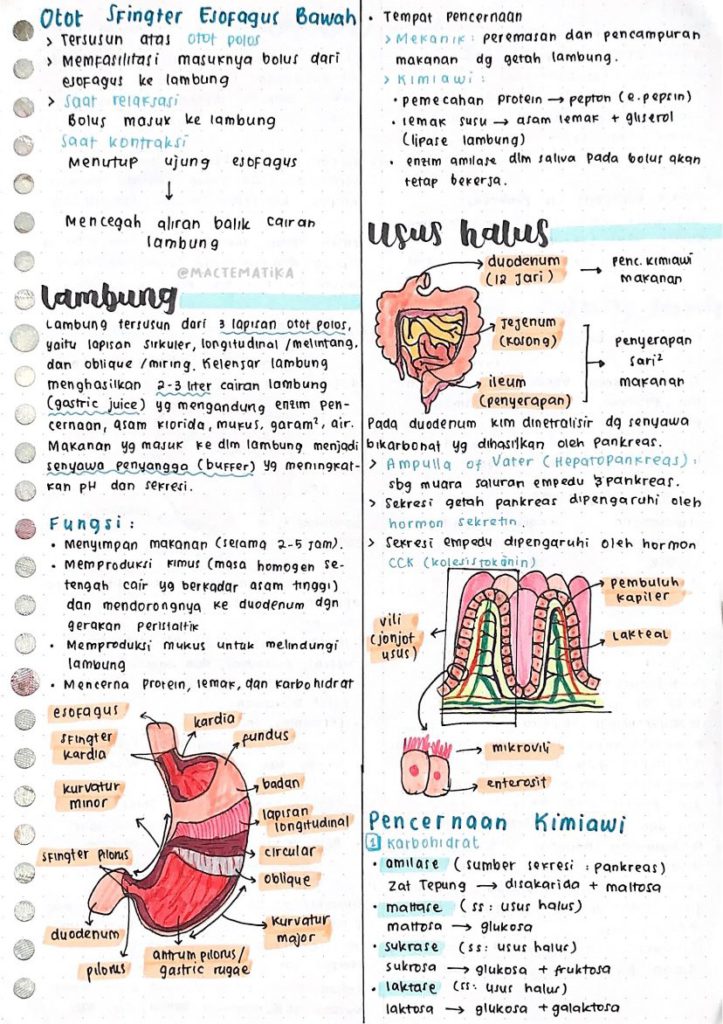 Otot Sfingter Esofagus Bawah
> Tersusun atas otot polos
> Memfasilitasi masuknya bolus dari
esofagus ke lambung
> Saat relaksasi
Bolus masuk ke lambung
Saat kontraksi
Menutup ujung esofagus
↓
Mencegah aliran balik cairan
lambung
@MACTEMATIKA
lambung
Lambung tersusun dari 3 lapisan otot polos,
yaitu lapisan sirkuler, longitudinal /melintang,
dan oblique /miring. Kelenjar lambung
menghasilkan 2-3 liter cairan lambung
(gastric juice) yg mengandung enzim pen-
cernaan, asam klorida, mukus, garam², air.
Makanan yg masuk ke dlm lambung menjadi
senyawa penyangga (buffer) yg meningkat-
kan pH dan sekresi.
Fungsi :
• Menyimpan makanan (selama 2-5 jam).
• Memproduksi kimus (masa homogen se-
tengah cair yg berkadar asam tinggi)
dan mendorongnya ke duodenum dgn
gerakan peristaltik
• Memproduksi mukus untuk melindungi
lambung
• Mencerna protein, lemak, dan karbohidrat
esofagus
kardia
sfingter
kardia
fundus
kurvatur
minor
badan
lapisan
longitudinal
sfingter pilorus
circular
oblique
duodenum
kurvatur
major
pilorus
antrum pilorus/
gastric rugae
• Tempat pencernaan
> Mekanik : peremasan dan pencampuran
makanan dg getah lambung.
> Kimiawi :
• pemecahan protein → pepton (e.pepsin)
• lemak susu → asam lemak + gliserol
(lipase lambung)
• enzim amilase dlm saliva pada bolus akan
tetap bekerja.
usus halus
duodenum
(12 jari)
→ penc. kimiawi
makanan
jejenum
(kosong)
penyerapan
sari²
makanan
ileum
(penyerapan)
Pada duodenum kim dinetralisir dg senyawa
bikarbonat yg dihasilkan oleh pankreas.
> Ampulla of Vater (Hepatopankreas) :
sbg muara saluran empedu & pankreas.
> Sekresi getah pankreas dipengaruhi oleh
hormon sekretin.
> Sekresi empedu dipengaruhi oleh hormon
CCK (kolesistokinin)
pembuluh
kapiler
vili
(jonjot
usus)
lakteal
mikrovili
enterosit
Pencernaan Kimiawi
1 Karbohidrat
• amilase (sumber sekresi : pankreas)
Zat Tepung → disakarida + maltosa
• maltase (ss : usus halus)
maltosa → glukosa
• sukrase (ss: usus halus)
sukrosa → glukosa + fruktosa
• laktase (ss: usus halus)
laktosa → glukosa + galaktosa